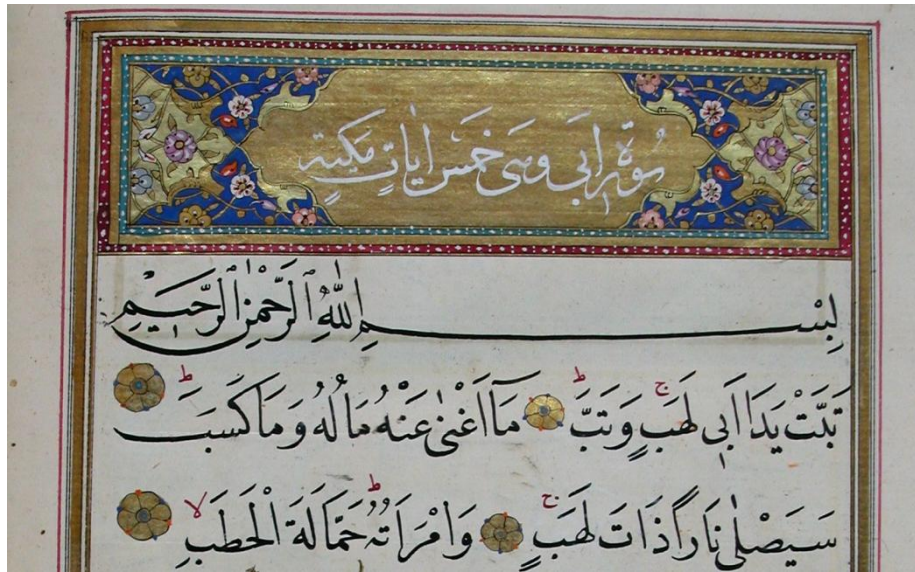 سُورَة اَبى وهى خَمْس اٰياتٍ مَكيّة
بِسْمِ اللّٰهِ الرَّحْمٰنِ الرَّحِيمِ
تَبَّتْ يَدَا اَبِى لَهَبٍ ج وَتَبَّ ط مَا اَغْنٰى عَنْهُ مَالُهُ وَمَا كَسَبَ ط
سَيَصْلٰى نَارًا ذَاتَ لَهَبٍ ج وَامْرَاَتُهُ ط حَمَّالَةَ الْحَطَبِ لا